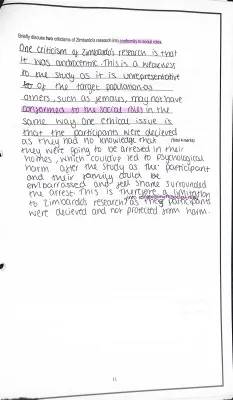 Briefly discuss two criticisms of Zimbardo's research into conformity to social roles.
One criticism of Zimbardo's research is that
it was androcentric. This is a weakness
to the study as it is unrepresentative
to of the target population as
others, such as females, may not have
conformed to the social roles in the
same way. One ethical issue is
that the participants were decieved
(Total 4 marks)
as they had no knowledge that
they were going to be arrested in their
homes, which could've led to psychological
harm after the study as the participant
and their family could be
embarrassed and feel shame surrounded
the arrest. This is therefore a limitation
to Zimbardo's research as the participants
were decieved and not protected from harm.
11